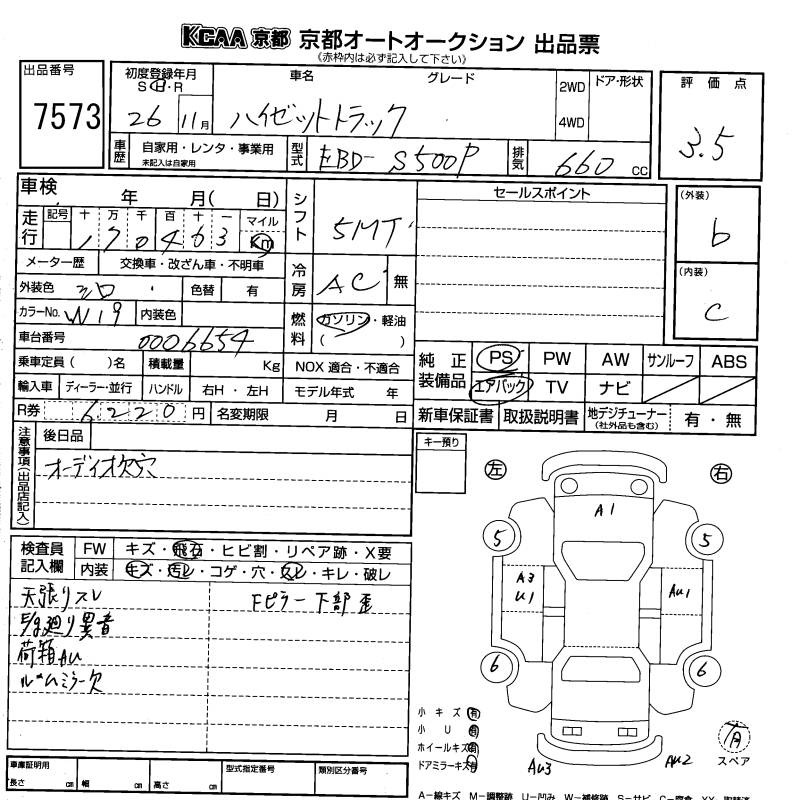 KCAA 京都 京都オートオークション 出品票
(赤枠内は必ず記入して下さい)
出品番号
7573
初度登録年月
S・H・R
26 11月
車名 グレード
ハイゼットトラック
2WD
4WD
ドア・形状
評価点
3.5
車歴
自家用・レンタ・事業用
未記入は自家用
型式 EBD- S500P
排気 660 cc
車検 年 月( 日)
走行
記号 十 万 千 百 十 一 マイル
1 7 0 4 6 3 Km
シフト 5MT
メーター歴 交換車・改ざん車・不明車
外装色 シロ 色替 有
冷房 AC 無
カラーNo. W19 内装色
燃料 ガソリン・軽油
( )
車台番号 0006654
乗車定員( )名 積載量 Kg NOX 適合・不適合
輸入車 ディーラー・並行 ハンドル 右H・左H モデル年式 年
R券 6220円 名変期限 月 日
セールスポイント
(外装)
b
(内装)
C
純正装備品
PS PW AW サンルーフ ABS
エアバック TV ナビ
新車保証書 取扱説明書 地デジチューナー(社外品も含む) 有・無
注意事項(出品店記入)
後日品
オーディオ欠穴
キー預り
検査員記入欄
FW キズ・飛石・ヒビ割・リペア跡・X要
内装 キズ・汚レ・コゲ・穴・スレ・キレ・破レ
天張りスレ
Fピラー下部歪
E/g廻り異音
荷箱AU
ルームミラー欠
左 右
A1
5 5
A3
U1
AU1
6 6
小キズ 有
小U 有
ホイールキズ 有
ドアミラーキズ 有
AU3 AU2
スペア
車庫証明用
長さ cm 幅 cm 高さ cm
型式指定番号
類別区分番号
A-線キズ M-調整跡 U-凹み W-補修跡 S-サビ